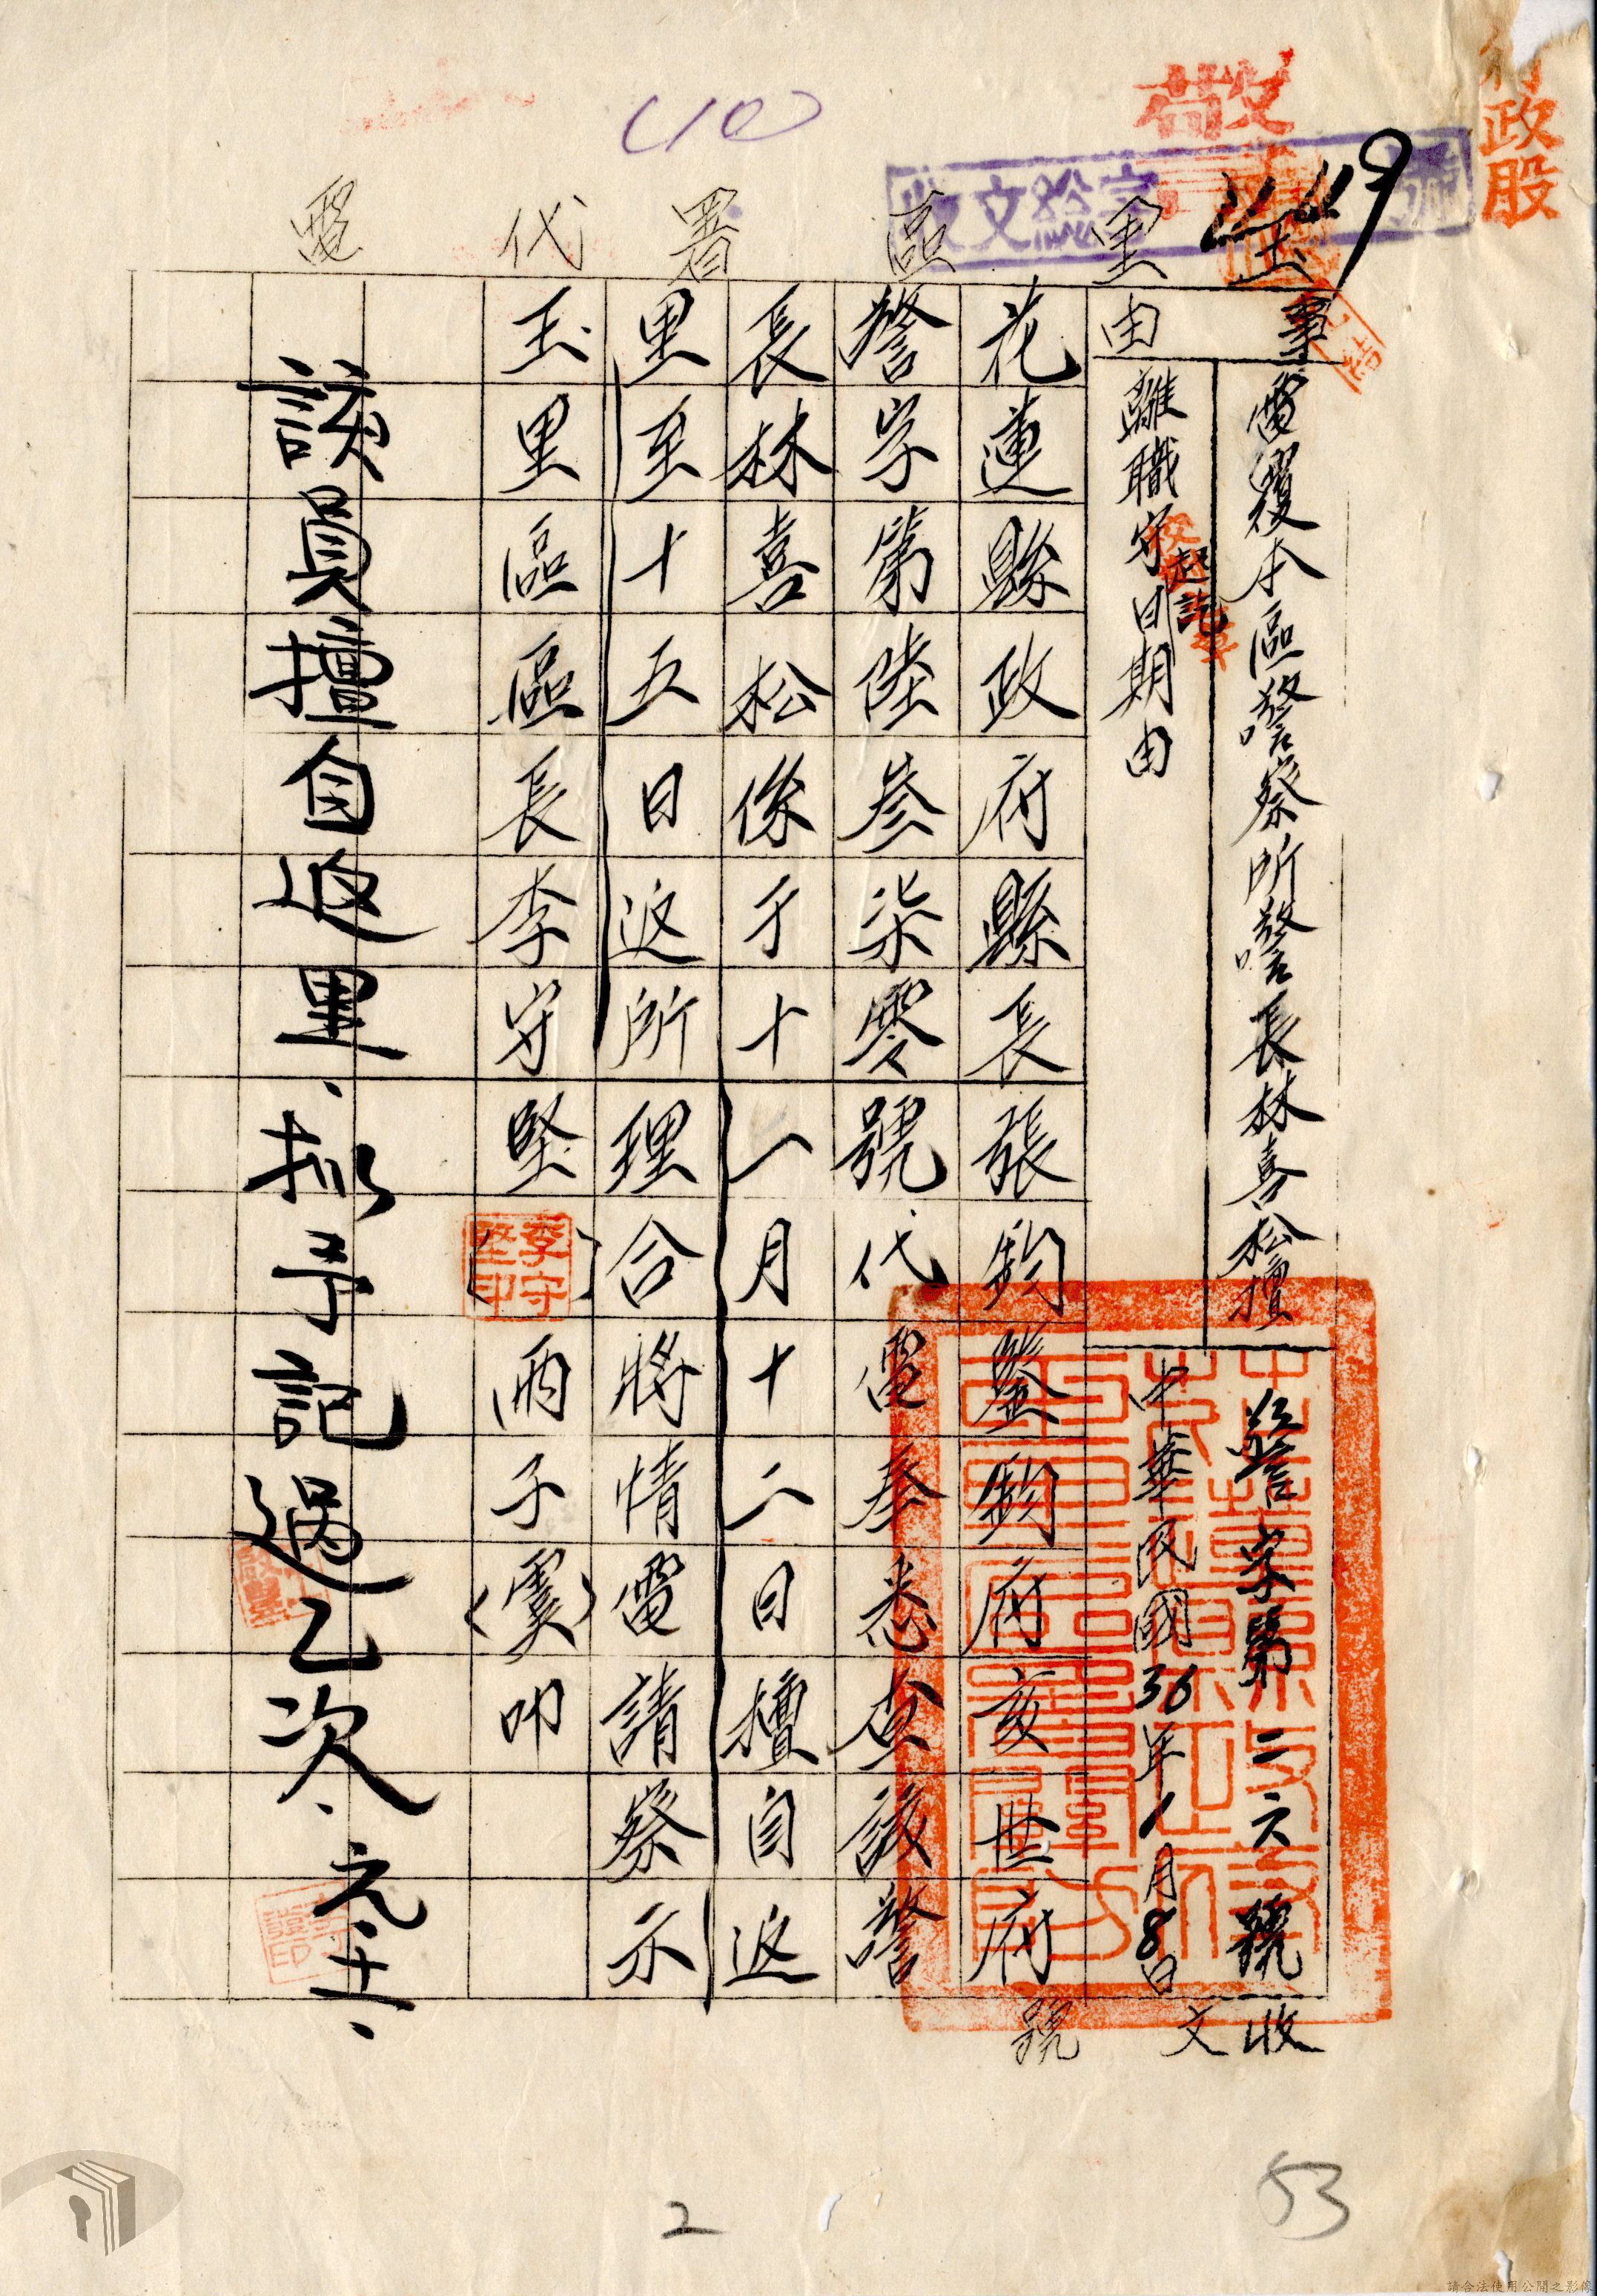 行政股
(10)
收文總字
號
449
玉里區署代電
事由
電覆本區警察所警長林喜松擅
離職守起訖日期由
警字第二六號
中華民國36年1月8日
收文號
花蓮縣政府縣長張鈞鑒鈞府亥世府
警字第陸叁柒零號代電奉悉查該警
長林喜松係于十一月十二日擅自返
里至十五日返所理合將情電請察示
玉里區區長李守堅
李守堅印
丙子(寅)叩
該員擅自返里、拟予記過乙次、元、十二、
2
53
請合法使用公開之影像